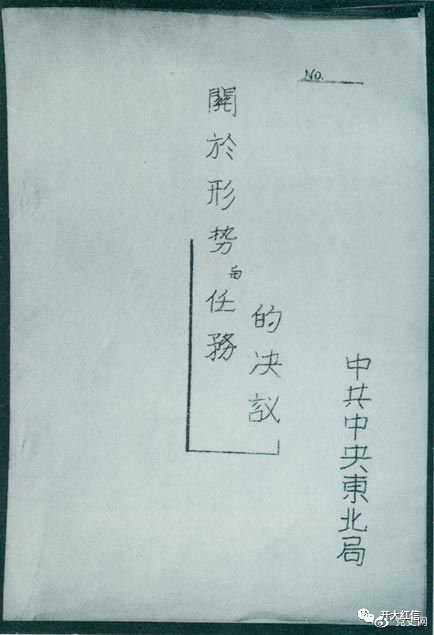 No.
關於形势与任務
的决议
中共中央東北局
开大红信